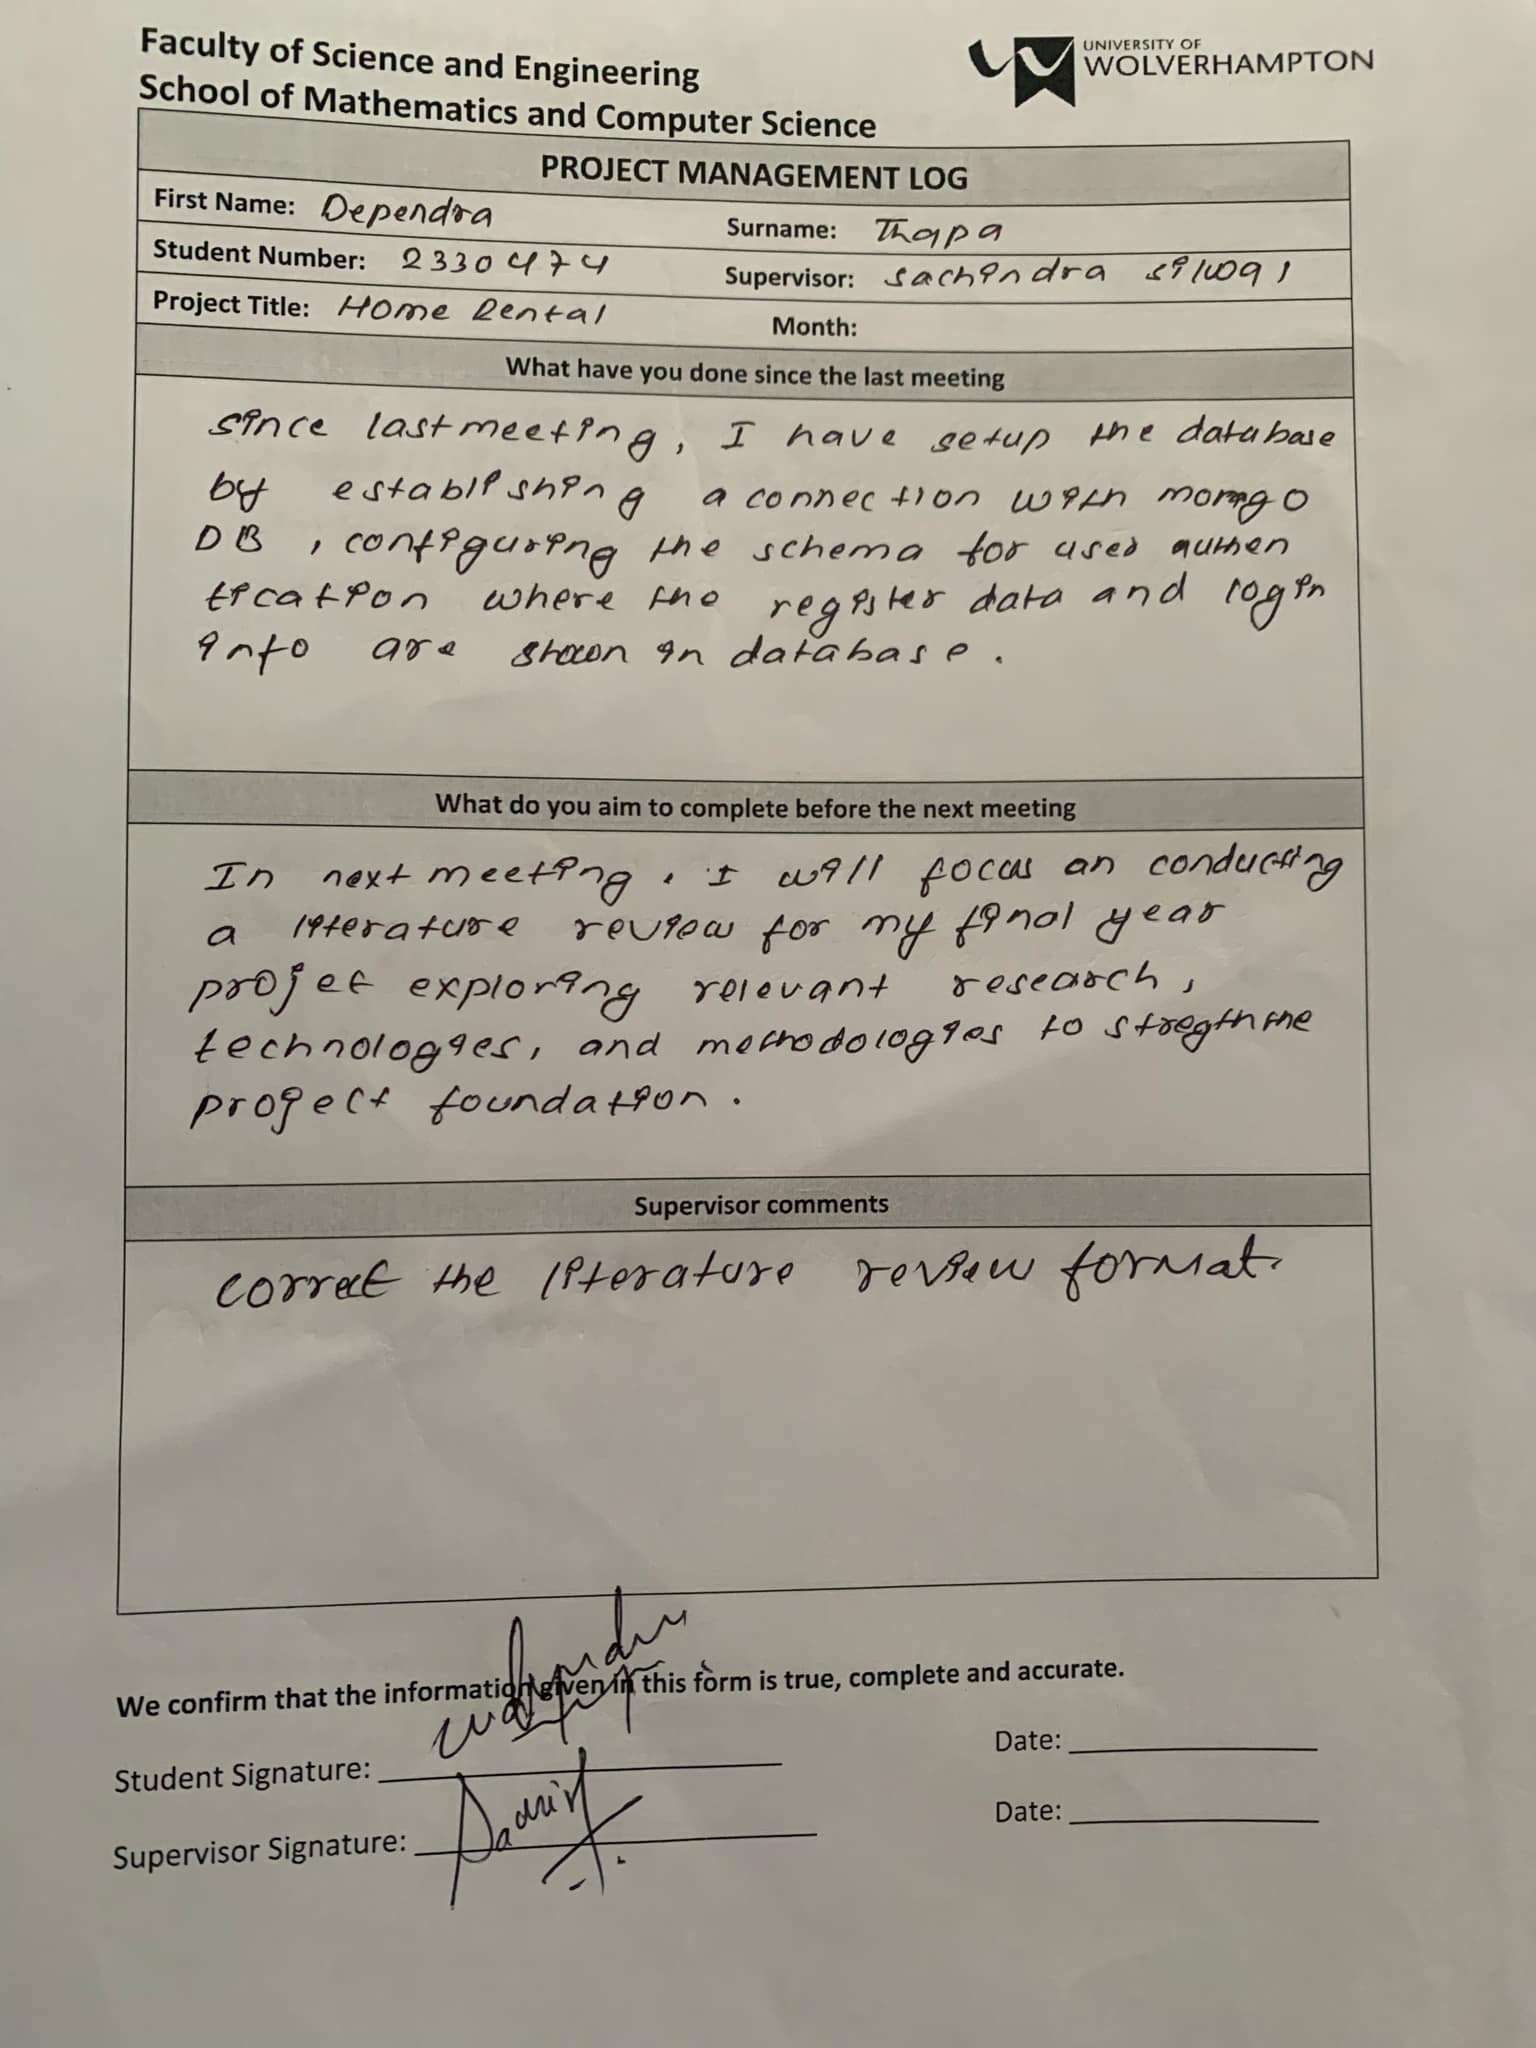 Faculty of Science and Engineering
School of Mathematics and Computer Science
UNIVERSITY OF
WOLVERHAMPTON
PROJECT MANAGEMENT LOG
First Name: Dependra
Surname: Thapa
Student Number: 2330474
Supervisor: Sachindra
Project Title: Home Rental
Month:
What have you done since the last meeting
since last meeting, I have setup the database
by establishing a connection with mongo
DB, configuring the schema for user authen
tication where the register data and login
info are shown in database.
What do you aim to complete before the next meeting
In next meeting, I will focus on conducting
a literature review for my final year
projet exploring relevant research,
technologies, and methodologies to stregth the
project foundation.
Supervisor comments
correct the literature review format.
We confirm that the information given in this form is true, complete and accurate.
Student Signature:
Date:
Supervisor Signature:
Date: